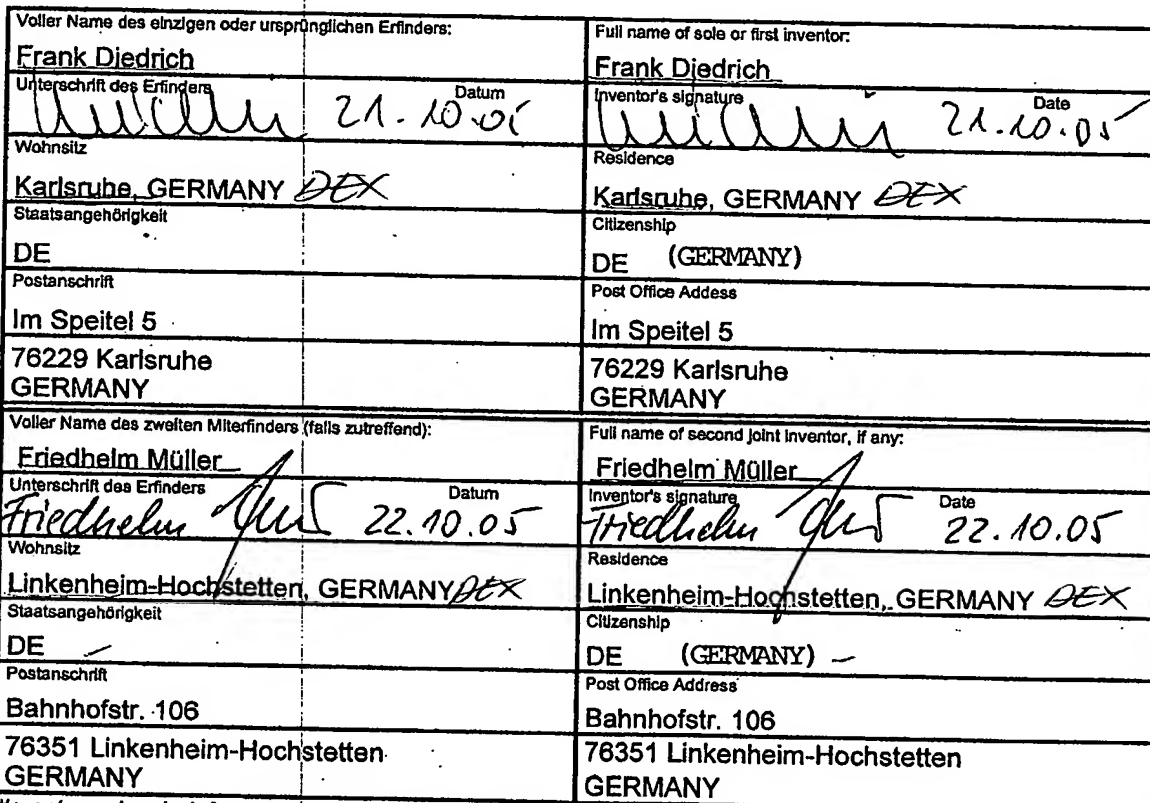 Voller Name des einzigen oder ursprünglichen Erfinders:
Frank Diedrich
Unterschrift des Erfinders Datum
21.10.05
Wohnsitz
Karlsruhe, GERMANY DEX
Staatsangehörigkeit
DE
Postanschrift
Im Speitel 5
76229 Karlsruhe
GERMANY
Voller Name des zweiten Miterfinders (falls zutreffend):
Friedhelm Müller
Unterschrift des Erfinders Datum
Friedhelm 22.10.05
Wohnsitz
Linkenheim-Hochstetten, GERMANY DEX
Staatsangehörigkeit
DE
Postanschrift
Bahnhofstr. 106
76351 Linkenheim-Hochstetten
GERMANY
Full name of sole or first inventor:
Frank Diedrich
Inventor's signature Date
21.10.05
Residence
Karlsruhe, GERMANY DEX
Citizenship
DE (GERMANY)
Post Office Addess
Im Speitel 5
76229 Karlsruhe
GERMANY
Full name of second joint inventor, if any:
Friedhelm Müller
Inventor's signature Date
Friedhelm 22.10.05
Residence
Linkenheim-Hochstetten, GERMANY DEX
Citizenship
DE (GERMANY)
Post Office Address
Bahnhofstr. 106
76351 Linkenheim-Hochstetten
GERMANY